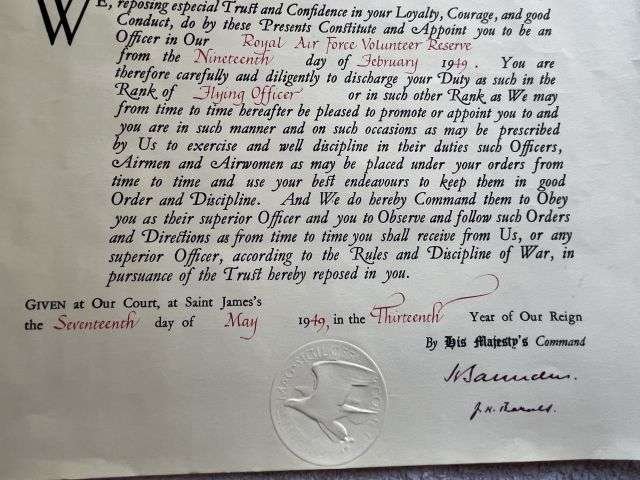 WE, reposing especial Trust and Confidence in your Loyalty, Courage, and good
Conduct, do by these Presents Constitute and Appoint you to be an
Officer in Our Royal Air Force Volunteer Reserve
from the Nineteenth day of February 1949. You are
therefore carefully and diligently to discharge your Duty as such in the
Rank of Flying Officer or in such other Rank as We may
from time to time hereafter be pleased to promote or appoint you to and
you are in such manner and on such occasions as may be prescribed
by Us to exercise and well discipline in their duties such Officers,
Airmen and Airwomen as may be placed under your orders from
time to time and use your best endeavours to keep them in good
Order and Discipline. And We do hereby Command them to Obey
you as their superior Officer and you to Observe and follow such Orders
and Directions as from time to time you shall receive from Us, or any
superior Officer, according to the Rules and Discipline of War, in
pursuance of the Trust hereby reposed in you.
GIVEN at Our Court, at Saint James's
the Seventeenth day of May 1949, in the Thirteenth Year of Our Reign
By His Majesty's Command
H Saunders.
J. H. Barnes.